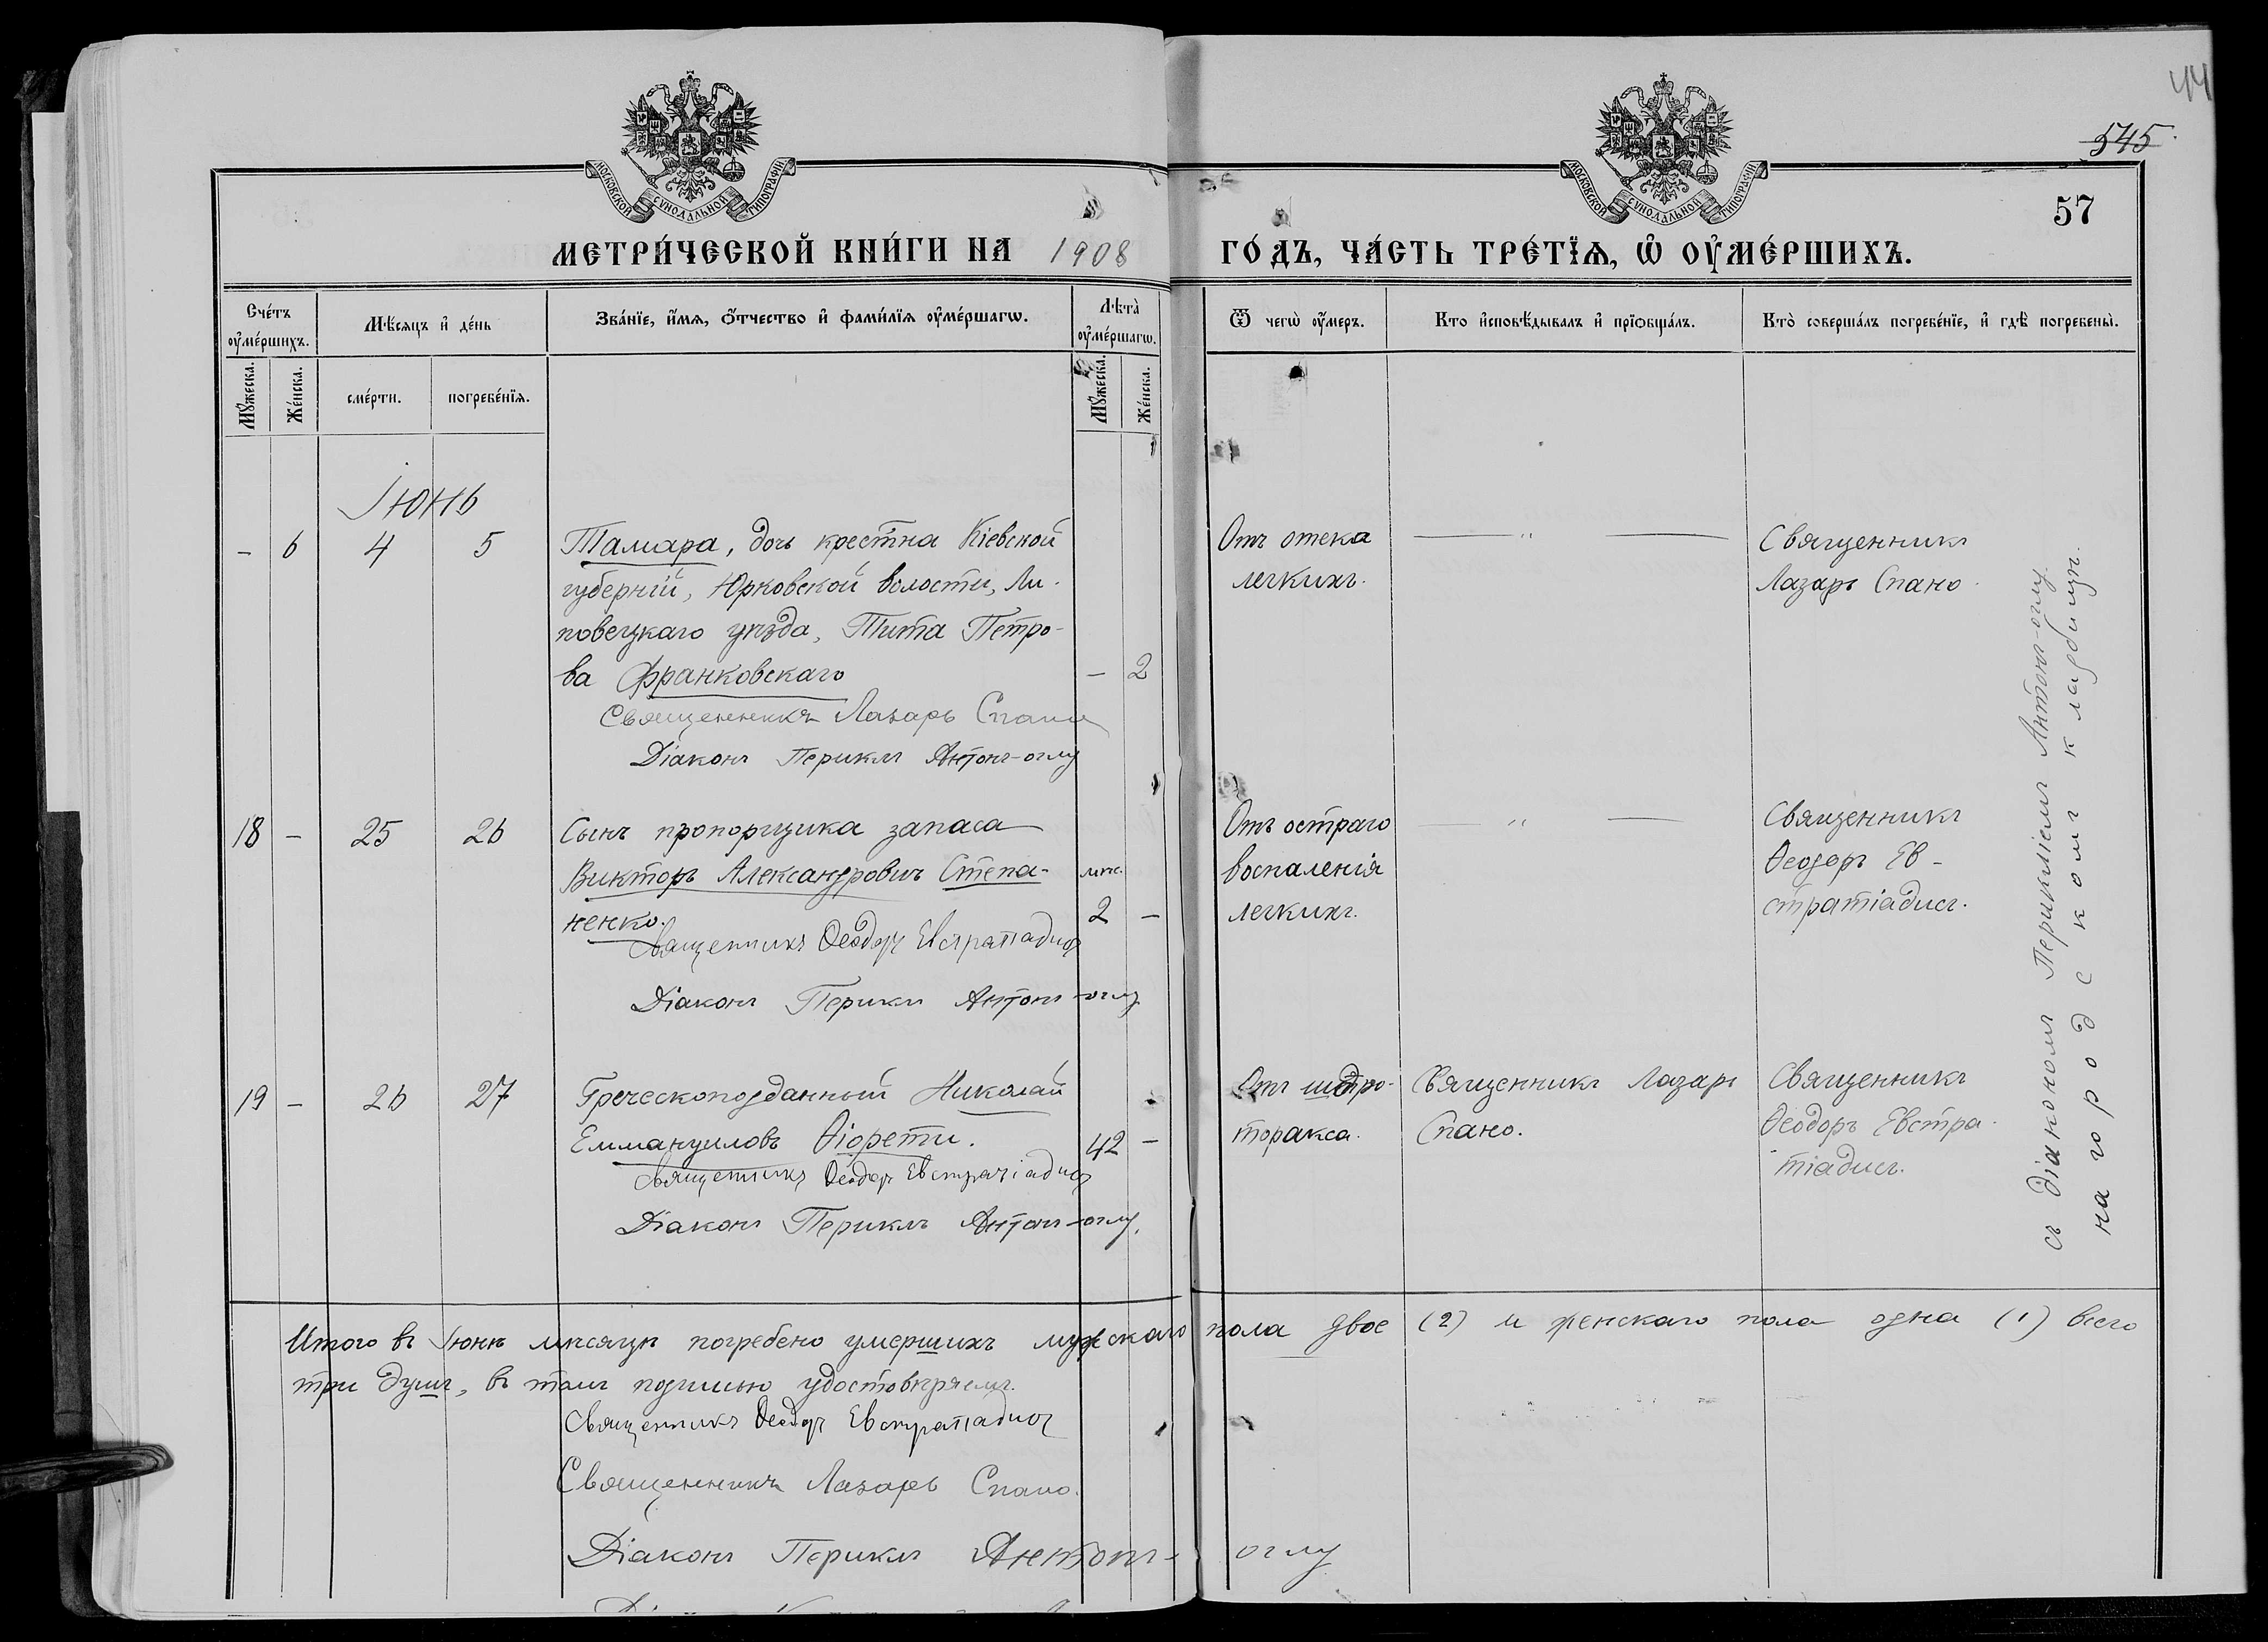 44
545
57
МОСКОВСКОЙ СѴНОДАЛЬНОЙ ТИПОГРАФІИ
МОСКОВСКОЙ СѴНОДАЛЬНОЙ ТИПОГРАФІИ
МЕТРИ́ЧЕСКОЙ КНИ́ГИ НА 1908 ГО́ДЪ, ЧА́СТЬ ТРЕ́ТЇѦ, Ѽ ОУ҆МЕ́РШИХЪ.
Сче́тъ оу҆ме́ршихъ.
Мѣ́сяцъ и҆ де́нь
Зва́нїе, и҆́мя, ѻ҆́тчество и҆ фами́лїя оу҆ме́ршагѡ.
Лѣта̀ оу҆ме́ршагѡ.
Ѿ чегѡ̀ оу҆́меръ.
Кто и҆сповѣ́дывалъ и҆ прїѻбща́лъ.
Кто̀ соверша́лъ погребе́нїе, и҆ гдѣ̀ погребены̀.
Мꙋ́жеска.
Же́нска.
сме́рти.
погребе́нїя.
Мꙋ́жеска.
Же́нска.
Іюнь
– 6 4 5 Тамара, дочь крестна Кіевской
губерніи, Юрковской волости, Ли-
повецкаго уѣзда, Тита Петро-
ва Франковскаго – 2
Священникъ Лазарь Спано
Діаконъ Периклъ Антонъ-оглу
Отъ отека
легкихъ.
— " —
Священникъ
Лазарь Спано.
18 – 25 26 Сынъ прапорщика запаса
Викторъ Александровичъ Степа- мѣс.
ненко. 2 –
Священникъ Ѳеодоръ Евстратіадисъ
Діаконъ Периклъ Антонъ-оглу
Отъ остраго
воспаленія
легкихъ.
— " —
Священникъ
Ѳеодоръ Ев-
стратіадисъ.
19 – 26 27 Греческоподданный Николай
Еммануиловъ Ѳіорети. 42 –
Священникъ Ѳеодоръ Евстратіадисъ
Діаконъ Периклъ Антонъ-оглу.
Отъ
торакса.
Священникъ Лазарь
Спано.
Священникъ
Ѳеодоръ Евстра-
тіадисъ.
съ діакономъ Перикліемъ Антонъ-оглу.
на городскомъ кладбищѣ.
Итого въ Іюнѣ мѣсяцѣ погребено умершихъ мужскаго пола двое (2) и женскаго пола одна (1) всего
три душъ, въ томъ подписью удостовѣряемъ.
Священникъ Ѳеодоръ Евстратіадисъ
Священникъ Лазарь Спано.
Діаконъ Периклъ Антонъ-оглу